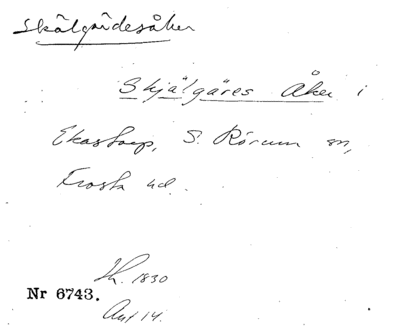 Skälgärdesåker
Skjälgäres Åker i
Ekastorp, S. Rörum sn,
Frosta hd.
Sk. 1830
Nr 6743.
Akt 14.